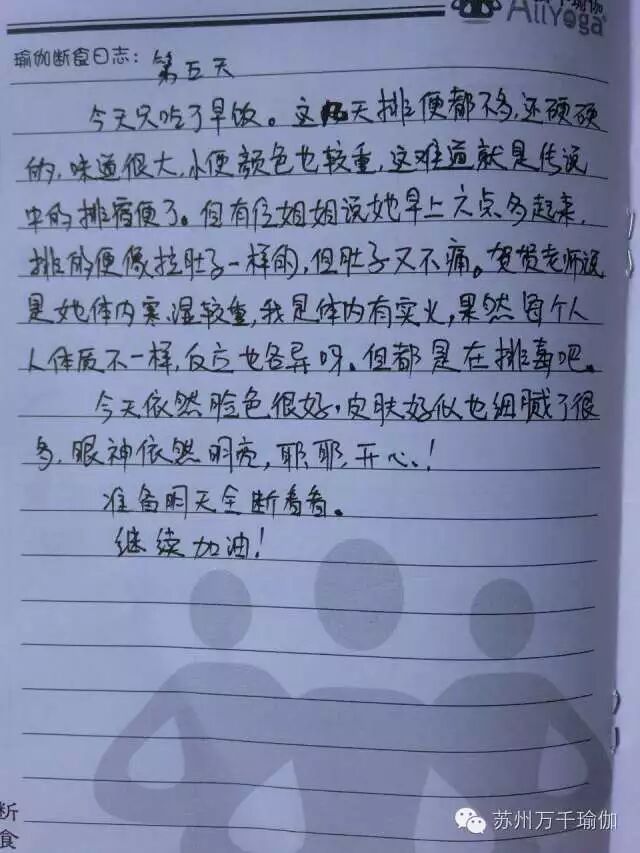 千瑜伽
AllYoga
瑜伽断食日志： 第五天
今天只吃了早饭。这几天排便都不多,还硬硬
的,味道很大,小便颜色也较重,这难道就是传说
中的排宿便了。但有位姐姐说她早上六点多起来,
排的便像拉肚子一样的,但肚子又不痛。贺贺老师说
是她体内寒湿较重,我是体内有实火,果然每个人
人体质不一样,反应也各异呀。但都是在排毒吧。
今天依然脸色很好,皮肤好似也细腻了很
多,眼神依然明亮,耶,耶,开心!
准备明天全断看看。
继续加油!
断
食
苏州万千瑜伽